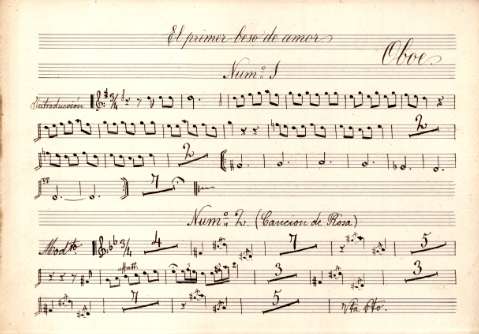 El primer beso de amor
Oboe
Num.º 1
Introduccion 3/4
2
2
7
Num.º 2 (Cancion de Rosa)
Mod.to 3/4 4 7 5
3 3
7 5 Vta. Pto.